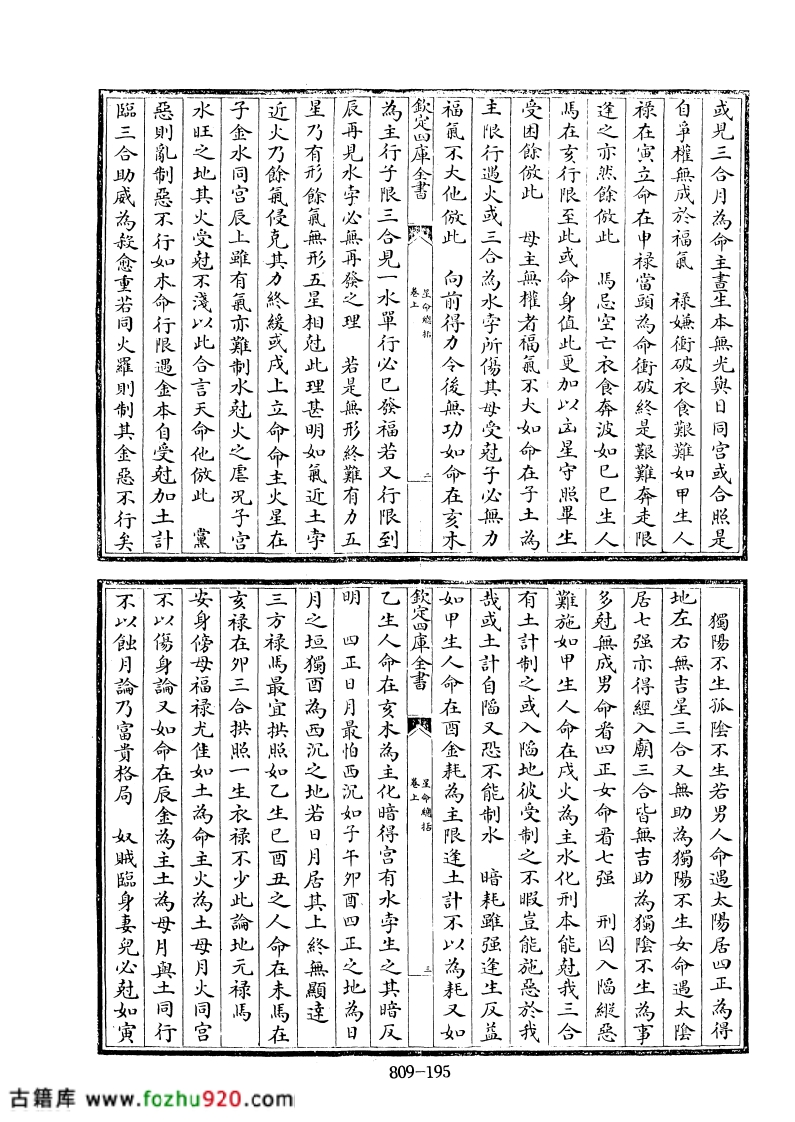 或見三合月為命主晝生本無光與日同宮或合照是
自爭權無成於福氣　祿嫌衝破衣食艱難如甲生人
祿在寅立命在申祿當頭為命衝破終是艱難奔走限
逢之亦然餘倣此　馬忌空亡衣食奔波如巳巳生人
馬在亥行限至此或命身值此更加以凶星守照畢生
受困餘倣此　母主無權者福氣不大如命在子土為
主限行遇火或三合為水孛所傷其母受尅子必無力
福氣不大他倣此　向前得力令後無功如命在亥木
欽定四庫全書
星命總括
卷上
二
為主行子限三合見一水單行必已發福若又行限到
辰再見水孛必無再發之理　若是無形終難有力五
星乃有形餘氣無形五星相尅此理甚明如氣近土孛
近火乃餘氣侵克其力終緩或戌上立命命主火星在
子金水同宮辰上雖有氣亦難制水尅火之虐况子宮
水旺之地其火受尅不淺以此合言天命他倣此　黨
惡則亂制惡不行如木命行限遇金本自受尅加土計
臨三合助威為殺愈重若同火羅則制其金惡不行矣
獨陽不生孤陰不生若男人命遇太陽居四正為得
地左右無吉星三合又無助為獨陽不生女命遇太陰
居七强亦得經入廟三合皆無吉助為獨陰不生為事
多尅無成男命看四正女命看七强　刑囚入陷縱惡
難施如甲生人命在戌火為主水化刑本能尅我三合
有土計制之或入陷地彼受制之不暇豈能施惡於我
哉或土計自陷又恐不能制水　暗耗雖强逢生反益
如甲生人命在酉金耗為主限逢土計不以為耗又如
欽定四庫全書
星命總括
卷上
三
乙生人命在亥木為主化暗得宮有水孛生之其暗反
明　四正日月最怕西沉如子午卯酉四正之地為日
月之垣獨酉為西沉之地若日月居其上終無顯達
三方祿馬最宜拱照如乙生巳酉丑之人命在未馬在
亥祿在卯三合拱照一生衣祿不少此論地元祿馬
安身傍母福祿尤佳如土為命主火為土母月火同宮
不以傷身論又如命在辰金為主土為母月與土同行
不以蝕月論乃富貴格局　奴賊臨身妻兒必尅如寅
809-195
古籍库 www.fozhu920.com